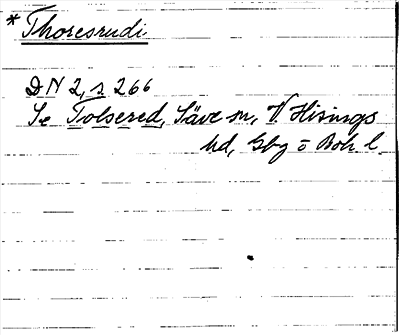 * Thoresrudi
DN 2, s 266
Se Tolsered, Säve sn, V Hisings
hd, Gbg o Boh l.